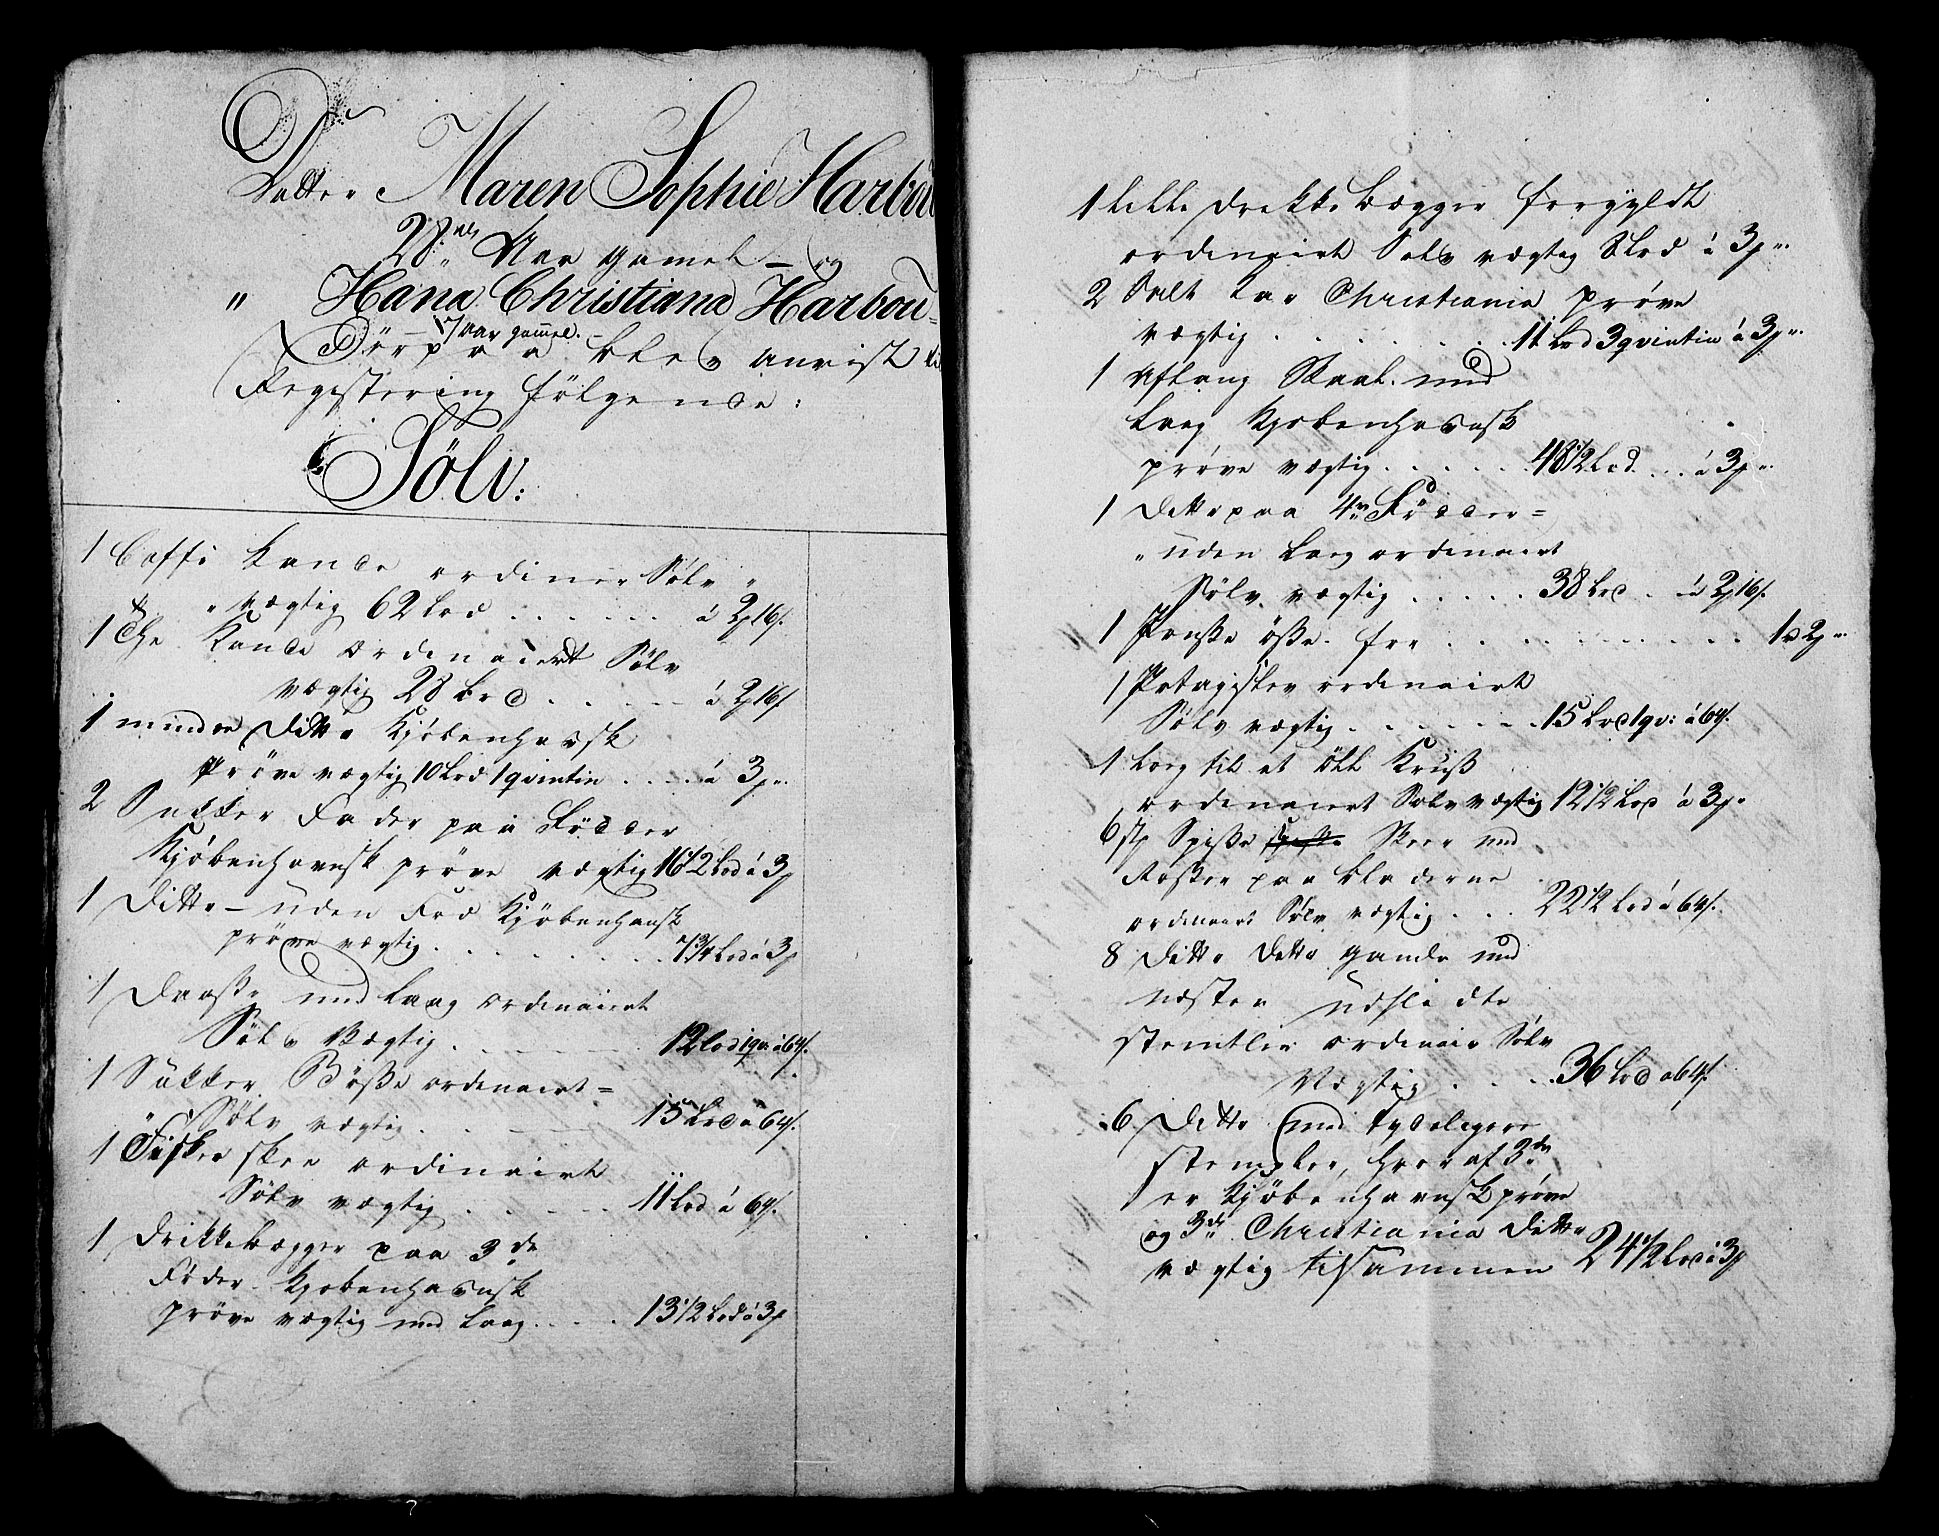 Datter Maren Sophie Harbou
28 Aar gamel – og
" Hana Christiana Harbou
17 aar gamel.
Derpaa blev anvist til
Registering følgende:
Sølv:
1 Caffe Kande ordiner Sølv
vægtig 62 Lod . . . . . . á 2 16 s.
1 The Kande ordenaiert Sølv
vægtig 28 Lod . . . . . á 2 16 s
1 mindre Ditto Kjöbenhavsk
Pröve vægtig 10 Lod 1 qvintin . . . . á 3
2 Sukker Fader paa Födder
Kjöbenhavnsk pröve vægtig 16 1/2 Lod á 3
1 Ditto – uden Fod Kjöbenhavnsk
pröve vægtig . . . . . . . 1 3/4 Lod á 3
1 Daaße med Laag ordenaieret
Sölv Vægtig . . . . . 12 Lod 1 qv: á 64 s.
1 Sukker Böße ordenaiert =
Sölv vægtig . . . . . 15 Lod á 64 s.
1 Fiske skee ordinairt
Sölv vægtig . . . . . 11 Lod á 64 s.
1 Drikkebægger paa 3de
Føder Kjobenhavnsk
pröve vægtig med Laag . . . . 13 1/2 Lod á 3
1 lille drekke bægger forgyldt
ordenairt Sølv vægtig 8 Lod á 3
2 Salt Kar Christiania pröve
vægtig . . . . . . . 11 Lod 3 qvintin á 3
1 Aflang Skaal med
Laag Kjobenhavnsk
pröve vægtig . . . . . 48 1/2 Lod . . á 3
1 Ditto paa 4re Födder =
" uden Laag ordenaiert
Sölv vægtig . . . . . 38 Lod . á 2 16 s.
1 Ponße öße for . . . . . . . . . 1 2
1 Potagiskee ordenairt
Sölv vægtig . . . . . . . 15 Lod 1 qv: á 64 s.
1 Laag til et Öll Kruß
ordenaiert Sölv vægtig 12 1/2 Lod á 3
6 st Spiße Skeer med
Rosker paa bladerne
ordenairt Sölv vægtig . . . 22 1/2 Lod á 64 s.
8 Ditto Ditto gamle med
næsten Udslidte
stemtler ordenair Sölv
Vægtig . . . . 36 Lod á 64 s.
6 Ditto med tydeligere
stempler, hvor af 3de
er Kjöbenhavnsk pröve
og 3de Christiania Ditto
vægtig tilsammen 24 1/2 Lod á 3